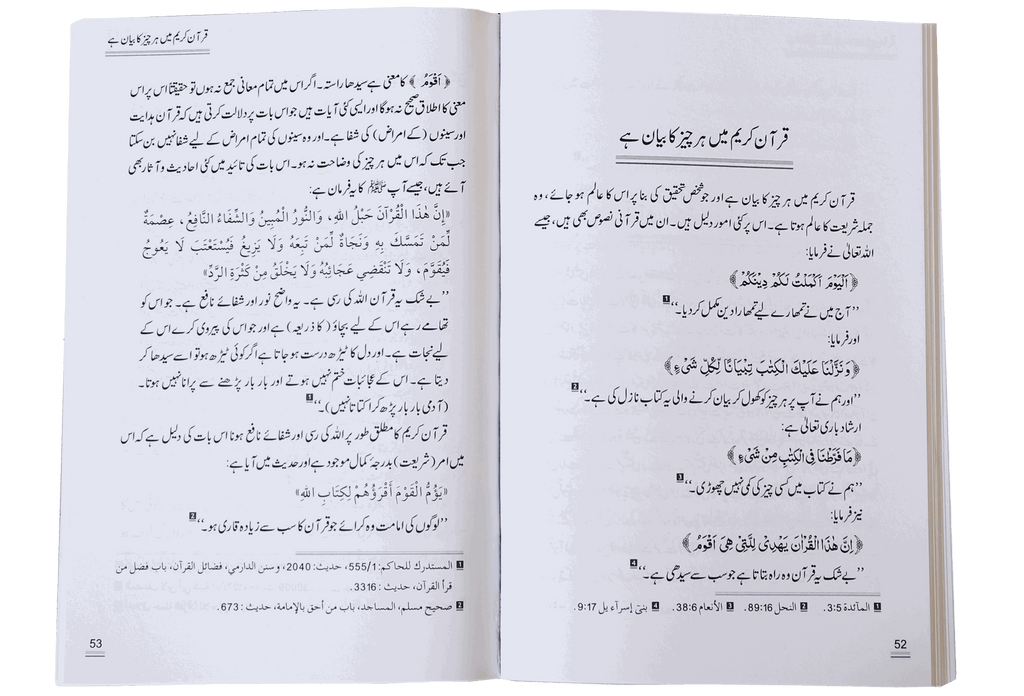 قرآن کریم میں ہر چیز کا بیان ہے
قرآن کریم میں ہر چیز کا بیان ہے اور جو شخص تحقیق کی بنا پر اس کا عالم ہو جائے، وہ
جملہ شریعت کا عالم ہوتا ہے۔ اس پر کئی امور دلیل ہیں۔ ان میں قرآنی نصوص بھی ہیں، جیسے
اللہ تعالیٰ نے فرمایا:
﴿اَلْيَوْمَ اَكْمَلْتُ لَكُمْ دِيْنَكُمْ﴾
’’آج میں نے تمھارے لیے تمھارا دین مکمل کر دیا۔‘‘ 1
اور فرمایا:
﴿وَنَزَّلْنَا عَلَيْكَ الْكِتٰبَ تِبْيَانًا لِّكُلِّ شَىْءٍ﴾
’’اور ہم نے آپ پر ہر چیز کو کھول کر بیان کرنے والی یہ کتاب نازل کی ہے۔‘‘ 2
ارشاد باری تعالیٰ ہے:
﴿مَا فَرَّطْنَا فِى الْكِتٰبِ مِنْ شَىْءٍ﴾
’’ہم نے کتاب میں کسی چیز کی کمی نہیں چھوڑی۔‘‘ 3
نیز فرمایا:
﴿اِنَّ هٰذَا الْقُرْاٰنَ يَهْدِىْ لِلَّتِىْ هِىَ اَقْوَمُ﴾
’’بے شک یہ قرآن وہ راہ بتاتا ہے جو سب سے سیدھی ہے۔‘‘ 4
1 المآئدة 3:5. 2 النحل 89:16. 3 الأنعام 38:6. 4 بنیٓ إسرآءیل 9:17.
52
قرآن کریم میں ہر چیز کا بیان ہے
﴿اَقْوَمُ﴾ کا معنی ہے سیدھا راستہ۔ اگر اس میں تمام معانی جمع نہ ہوں تو حقیقتاً اس پر اس
معنی کا اطلاق صحیح نہ ہوگا اور ایسی کئی آیات ہیں جو اس بات پر دلالت کرتی ہیں کہ قرآن ہدایت
اور سینوں (کے امراض) کی شفا ہے۔ اور وہ سینوں کی تمام امراض کے لیے شفا نہیں بن سکتا
جب تک کہ اس میں ہر چیز کی وضاحت نہ ہو۔ اس بات کی تائید میں کئی احادیث و آثار بھی
آئے ہیں، جیسے آپ ﷺ کا یہ فرمان ہے:
«إِنَّ هٰذَا الْقُرْآنَ حَبْلُ اللّٰهِ، وَالنُّورُ الْمُبِينُ وَالشِّفَاءُ النَّافِعُ، عِصْمَةٌ
لِّمَنْ تَمَسَّكَ بِهِ وَنَجَاةٌ لِّمَنْ تَبِعَهُ وَلَا يَزِيغُ فَيُسْتَعْتَبَ لَا يَعْوِجُّ
فَيُقَوَّمَ، وَلَا تَنْقَضِي عَجَائِبُهُ وَلَا يَخْلَقُ مِنْ كَثْرَةِ الرَّدِّ»
’’بے شک یہ قرآن اللہ کی رسی ہے۔ یہ واضح نور اور شفائے نافع ہے۔ جو اس کو
تھامے رہے اس کے لیے بچاؤ (کا ذریعہ) ہے اور جو اس کی پیروی کرے اس کے
لیے نجات ہے۔ اور دل کا ٹیڑھ درست ہو جاتا ہے اگر کوئی ٹیڑھ ہو تو اسے سیدھا کر
دیتا ہے۔ اس کے عجائبات ختم نہیں ہوتے اور بار بار پڑھنے سے پرانا نہیں ہوتا۔
(آدمی بار بار پڑھ کر اکتاتا نہیں)۔‘‘ 1
قرآن کریم کا مطلق طور پر اللہ کی رسی اور شفائے نافع ہونا اس بات کی دلیل ہے کہ اس
میں امر (شریعت) بدرجہ کمال موجود ہے اور حدیث میں آیا ہے:
«يَؤُمُّ الْقَوْمَ أَقْرَؤُهُمْ لِكِتَابِ اللّٰهِ»
’’لوگوں کی امامت وہ کرائے جو قرآن کا سب سے زیادہ قاری ہو۔‘‘ 2
1 المستدرك للحاكم: 555/1، حديث: 2040، وسنن الدارمي، فضائل القرآن، باب فضل من
قرأ القرآن، حديث: 3316.
2 صحيح مسلم، المساجد، باب من أحق بالإمامة، حديث: 673.
53